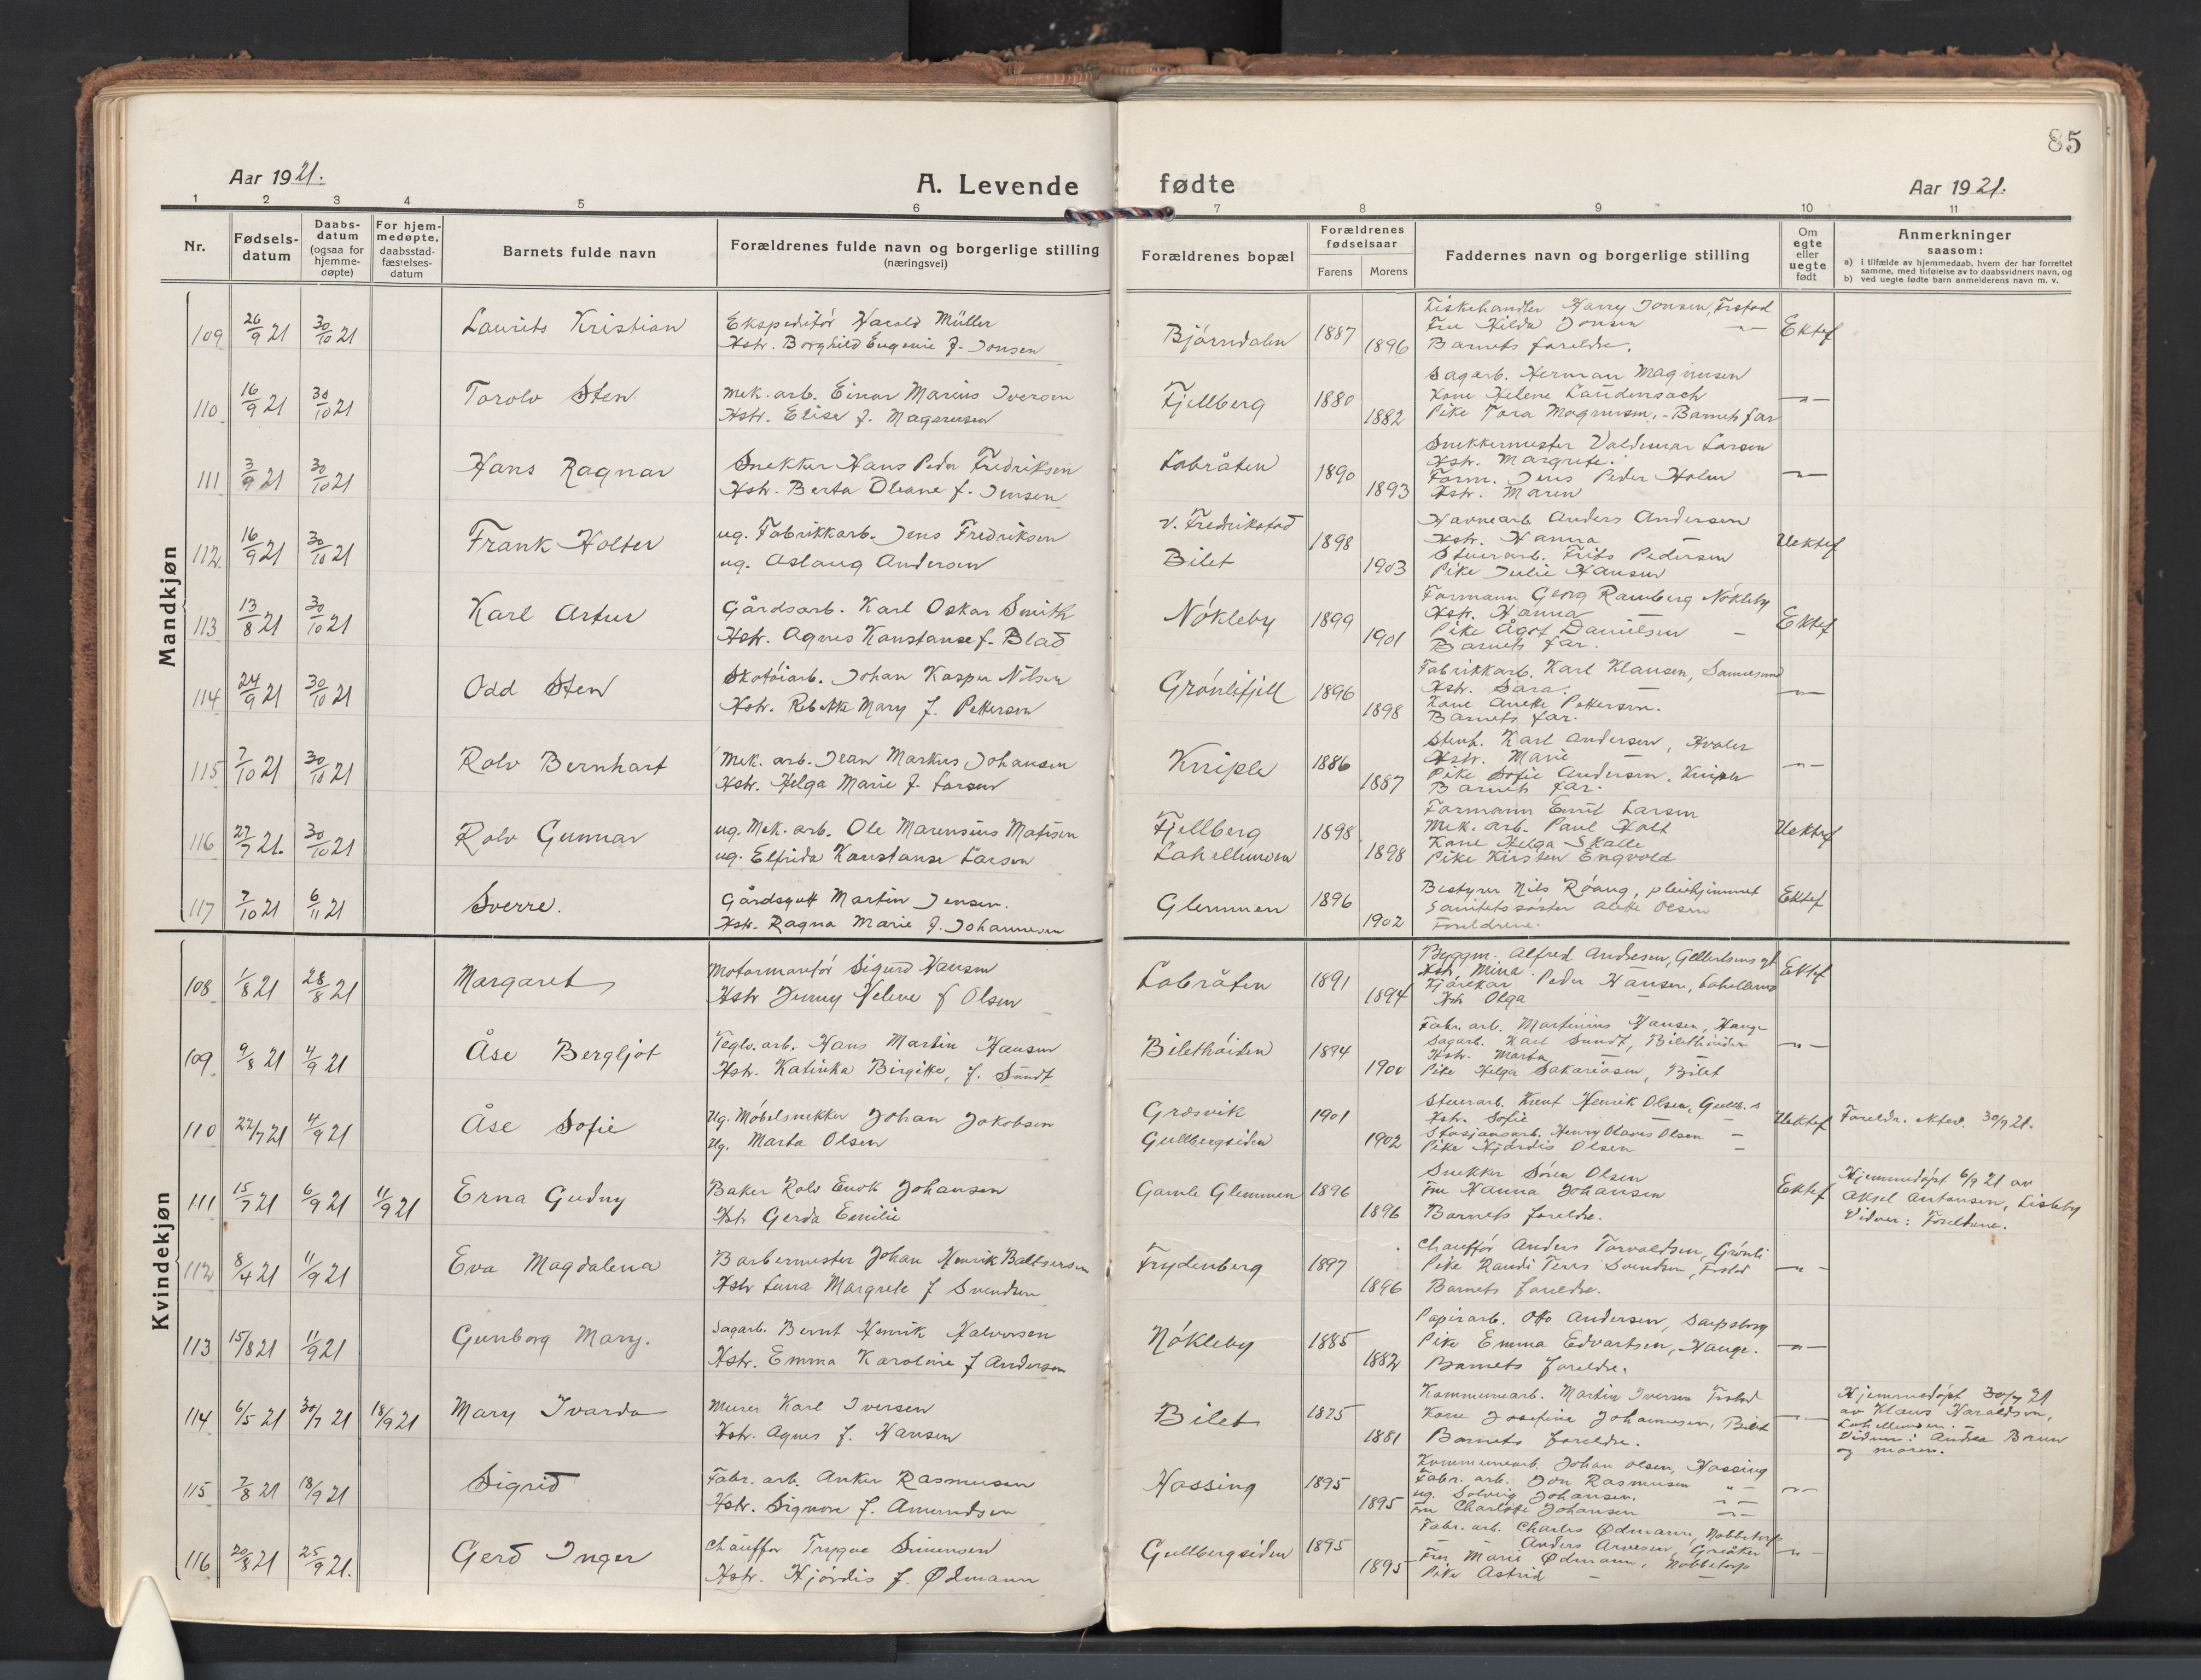 85
Aar 1921. A. Levende fødte Aar 1921.
1 2 3 4 5 6 7 8 9 10 11
Nr. Fødsels-datum Daabs-datum (ogsaa for hjemme-døpte) For hjem-medøpte, daabsstad-fæstelses-datum Barnets fulde navn Forældrenes fulde navn og borgerlige stilling (næringsvei) Forældrenes bopæl Forældrenes fødselsaar Farens Morens Faddernes navn og borgerlige stilling Om egte eller uegte født Anmerkninger saasom: a) i tilfælde av hjemmedaab, hvem der har forrettet samme, med tilføielse av to daabsvidners navn, og b) ved uegte fødte barn anmelderens navn m. v.
Mandkjøn
109 26/9 21 30/10 21 Laurits Kristian Ekspeditør Harald Müller Bjørndalen 1887 Fiskehandler Harry Jonsen, Frstad Ektef
Hstr. Borghild Eugenie f. Jonsen 1896 Fru Hilda Jonsen
Barnets foreldre.
110 16/9 21 30/10 21 Torolv Sten Mek. arb. Einar Marius Iversen Fjellberg 1880 Sagarb. Herman Magnusen
Hstr. Elise f. Magnusen 1882 Kone Helene Laudensach
Pike Tora Magnusen, - Barnets far
111 3/9 21 30/10 21 Hans Ragnar Snekker Hans Peder Fredriksen Labråten 1890 Snekkermester Valdemar Larsen
Hstr. Berta Oleane f. Jensen 1893 Hstr. Margrete.
Form. Jens Peder Holm
Hstr. Maren
112 16/9 21 30/10 21 Frank Holter ug. Fabrikkarb. Jens Fredriksen v. Fredrikstad 1898 Havnearb Anders Andersen Uektef
ug. Aslaug Andersen Bilet 1903 Hstr. Hanna
Stuerarb. Frits Pedersen
Pike Julie Hansen
113 13/8 21 30/10 21 Karl Artur Gårdsarb. Karl Oskar Smith Nøkleby 1899 Formann Georg Ramberg Nøkleby Ektef
Hstr. Agnes Konstanse f. Blad 1901 Hstr. Hanna
Pike Ågot Danielsen
Barnets far.
114 24/9 21 30/10 21 Odd Sten Skotøiarb. Johan Kasper Nilsen Grønlifjell 1896 Fabrikkarb. Karl Klausen,
Hstr. Rebekka Mary f. Pettersen 1898 Hstr. Sara.
Kone Anette Pettersen.
Barnets far.
115 7/10 21 30/10 21 Rolv Bernhart Mek. arb. Jean Markus Johansen Kniple 1886 Stenh. Karl Andersen, Hvaler
Hstr. Helga Marie f. Larsen 1887 Hstr. Marie
Pike Sofie Andersen, Kniple
Barnets far.
116 27/7 21. 30/10 21 Rolv Gunnar ug. Mek. arb. Ole Marensius Matisen Fjellberg 1898 Formann Emil Larsen Uektef
ug. Elfrida Konstanse Larsen Lahellemoen 1898 Mek. arb. Paul Holt
Kone Helga Skalle
Pike Kirsten Engvold
117 7/10 21 6/11 21 Sverre. Gårdsgutt Martin Jensen. Glemmen 1896 Bestyrer Nils Røang, pleiehjemmet Ektef
Hstr. Ragna Marie f. Johannesen 1902 Sanitetssøster Olette Olsen
Foreldrene.
Kvindekjøn
108 1/8 21 28/8 21 Margaret Motormontør Sigurd Hansen Labråten 1891 Byggm. Alfred Andresen, Ektef
Hstr Jenny Helene f Olsen 1894 Hstr. Mina.
Kjørekar Peder Hansen,
Hstr Olga
109 9/8 21 4/9 21 Åse Bergljot Teglv. arb. Hans Martin Hansen Bilethøiden 1894 Fabr. arb. Martinius Hansen, Hauge
Hstr. Katinka Birgitte, f. Sundt 1900 Sagarb. Karl Sundt, Bilethøiden
Hstr. Marta
Pike Helga Sakariasen, Bilet
110 22/7 21 4/9 21 Åse Sofie Ug. Møbelsnekker Johan Jakobsen Gresvik 1901 Stuerarb. Knut Henrik Olsen, Gullb. s Uektef Foreldr. ektev. 30/9 21.
Ug. Marta Olsen Gullbergsiden 1902 Hstr. Sofie
Stasjonsarb. Henry Olaves Olsen
Pike Hjørdis Olsen
111 15/7 21 6/9 21 11/9 21 Erna Gudny Baker Rolv Enok Johansen Gamle Glemmen 1896 Snekker Søren Olsen Ektef Hjemmedøpt 6/9 21 av
Hstr Gerda Emilie 1896 Fru Hanna Johansen Aksel Antonsen, Lisleby
Barnets foreldre. Vidner: Foreldrene.
112 8/4 21 11/9 21 Eva Magdalena Barbermester Johan Henrik Baltsersen Frydenberg 1897 Chauffør Anders Torvaldsen, Grønli
Hstr Luna Margrete f Svendsen 1896 Pike Randi Svendsen, Frstad
Barnets foreldre.
113 15/8 21 11/9 21 Gunborg Mary. Sagarb. Bernt Henrik Halvorsen Nøkleby 1885 Papirarb. Otto Andersen, Sarpsborg
Hstr. Emma Karoline f Andersen 1882 Pike Emma Edvartsen, Hauge.
Barnets foreldre.
114 6/5 21 30/7 21 18/9 21 Mary Ivarda Murer Karl Iversen Bilet 1875 Kommunearb. Martin Iversen Frstad Hjemmedøpt 30/7 21
Hstr. Agnes f. Hansen 1881 Kone Josefine Johannesen, Bilet av Klaus Haraldsen,
Barnets foreldre. Lahellemoen.
Vidner: Andrea Brun
og moren.
115 7/8 21 18/9 21 Sigrid Fabr. arb. Anker Rasmussen Hassing 1895 Kommunearb. Johan Olsen, Hassing
Hstr. Signora f. Amundsen 1895 Fabr. arb. Jon Rasmusen
ug. Solveig Johansen.
Fru Charlotte Johansen
116 20/8 21 25/9 21. Gerd Inger Chauffør Trygve Simensen Gullbergsiden 1895 Fabr. arb. Charles Ødmann, Nabbetorp
Hstr. Hjørdis f. Ødmann 1895 Anders Arvesen, Greåker
Fru Marie Ødmann, Nabbetorp
Pike Astrid